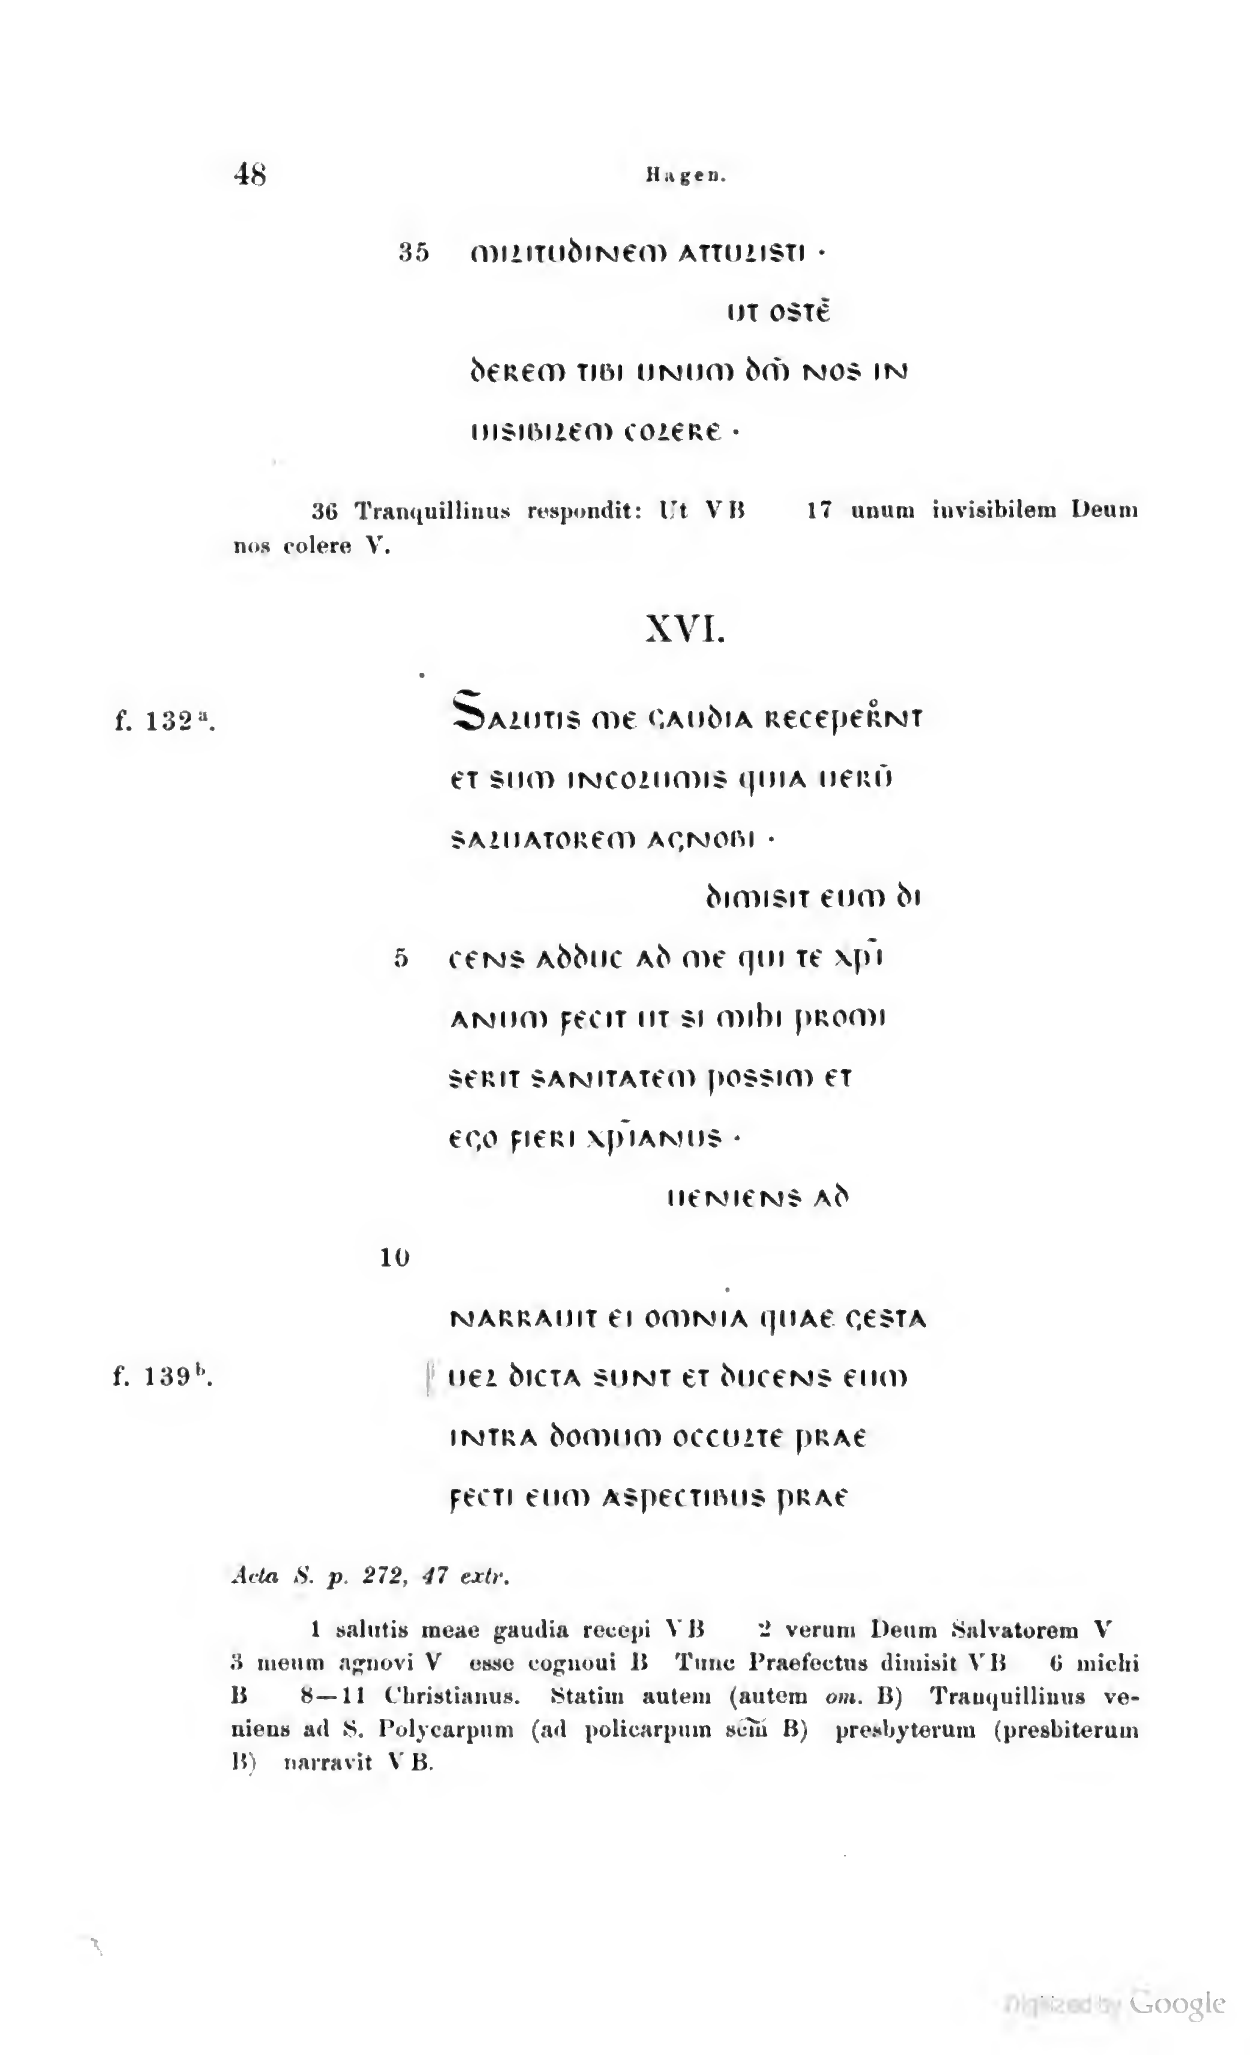 48 Hagen.
35 militudinem attulisti ·
ut ostē
derem tibi unum dm̄ nos in
uisibilem colere ·
36 Tranquillinus respondit: Ut VB 17 unum invisibilem Deum
nos colere V.
XVI.
f. 132ª. Salutis me gaudia receper̊nt
et sum incolumis quia uerū
saluatorem agnobi ·
dimisit eum di
5 cens adduc ad me qui te xp̄i
anum fecit ut si mihi promi
serit sanitatem possim et
ego fieri xp̄ianus ·
ueniens ad
10
narrauit ei omnia quae gesta
f. 139ᵇ. uel dicta sunt et ducens eum
intra domum occulte prae
fecti eum aspectibus prae
Acta S. p. 272, 47 extr.
1 salutis meae gaudia recepi VB 2 verum Deum Salvatorem V
3 meum agnovi V esse cognoui B Tunc Praefectus dimisit VB 6 michi
B 8—11 Christianus. Statim autem (autem om. B) Tranquillinus ve-
niens ad S. Polycarpum (ad policarpum scm̄ B) presbyterum (presbiterum
B) narravit VB.
Digitized by Google